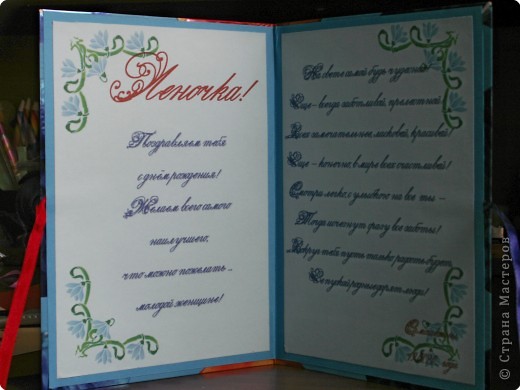 Леночка!
Поздравляем тебя
с днём рождения!
Желаем всего самого
наилучшего,
что можно пожелать
молодой женщине!
На свете самой будь чудесной!
Еще - всегда заботливой, прелестной!
Всех замечательней, ласковей, красивей!
Еще - конечно, в мире всех счастливей!
Смотри легко, с улыбкою на все ты -
Тогда исчезнут сразу все заботы!
Вокруг тебя пусть только радость будет,
© Страна Мастеров